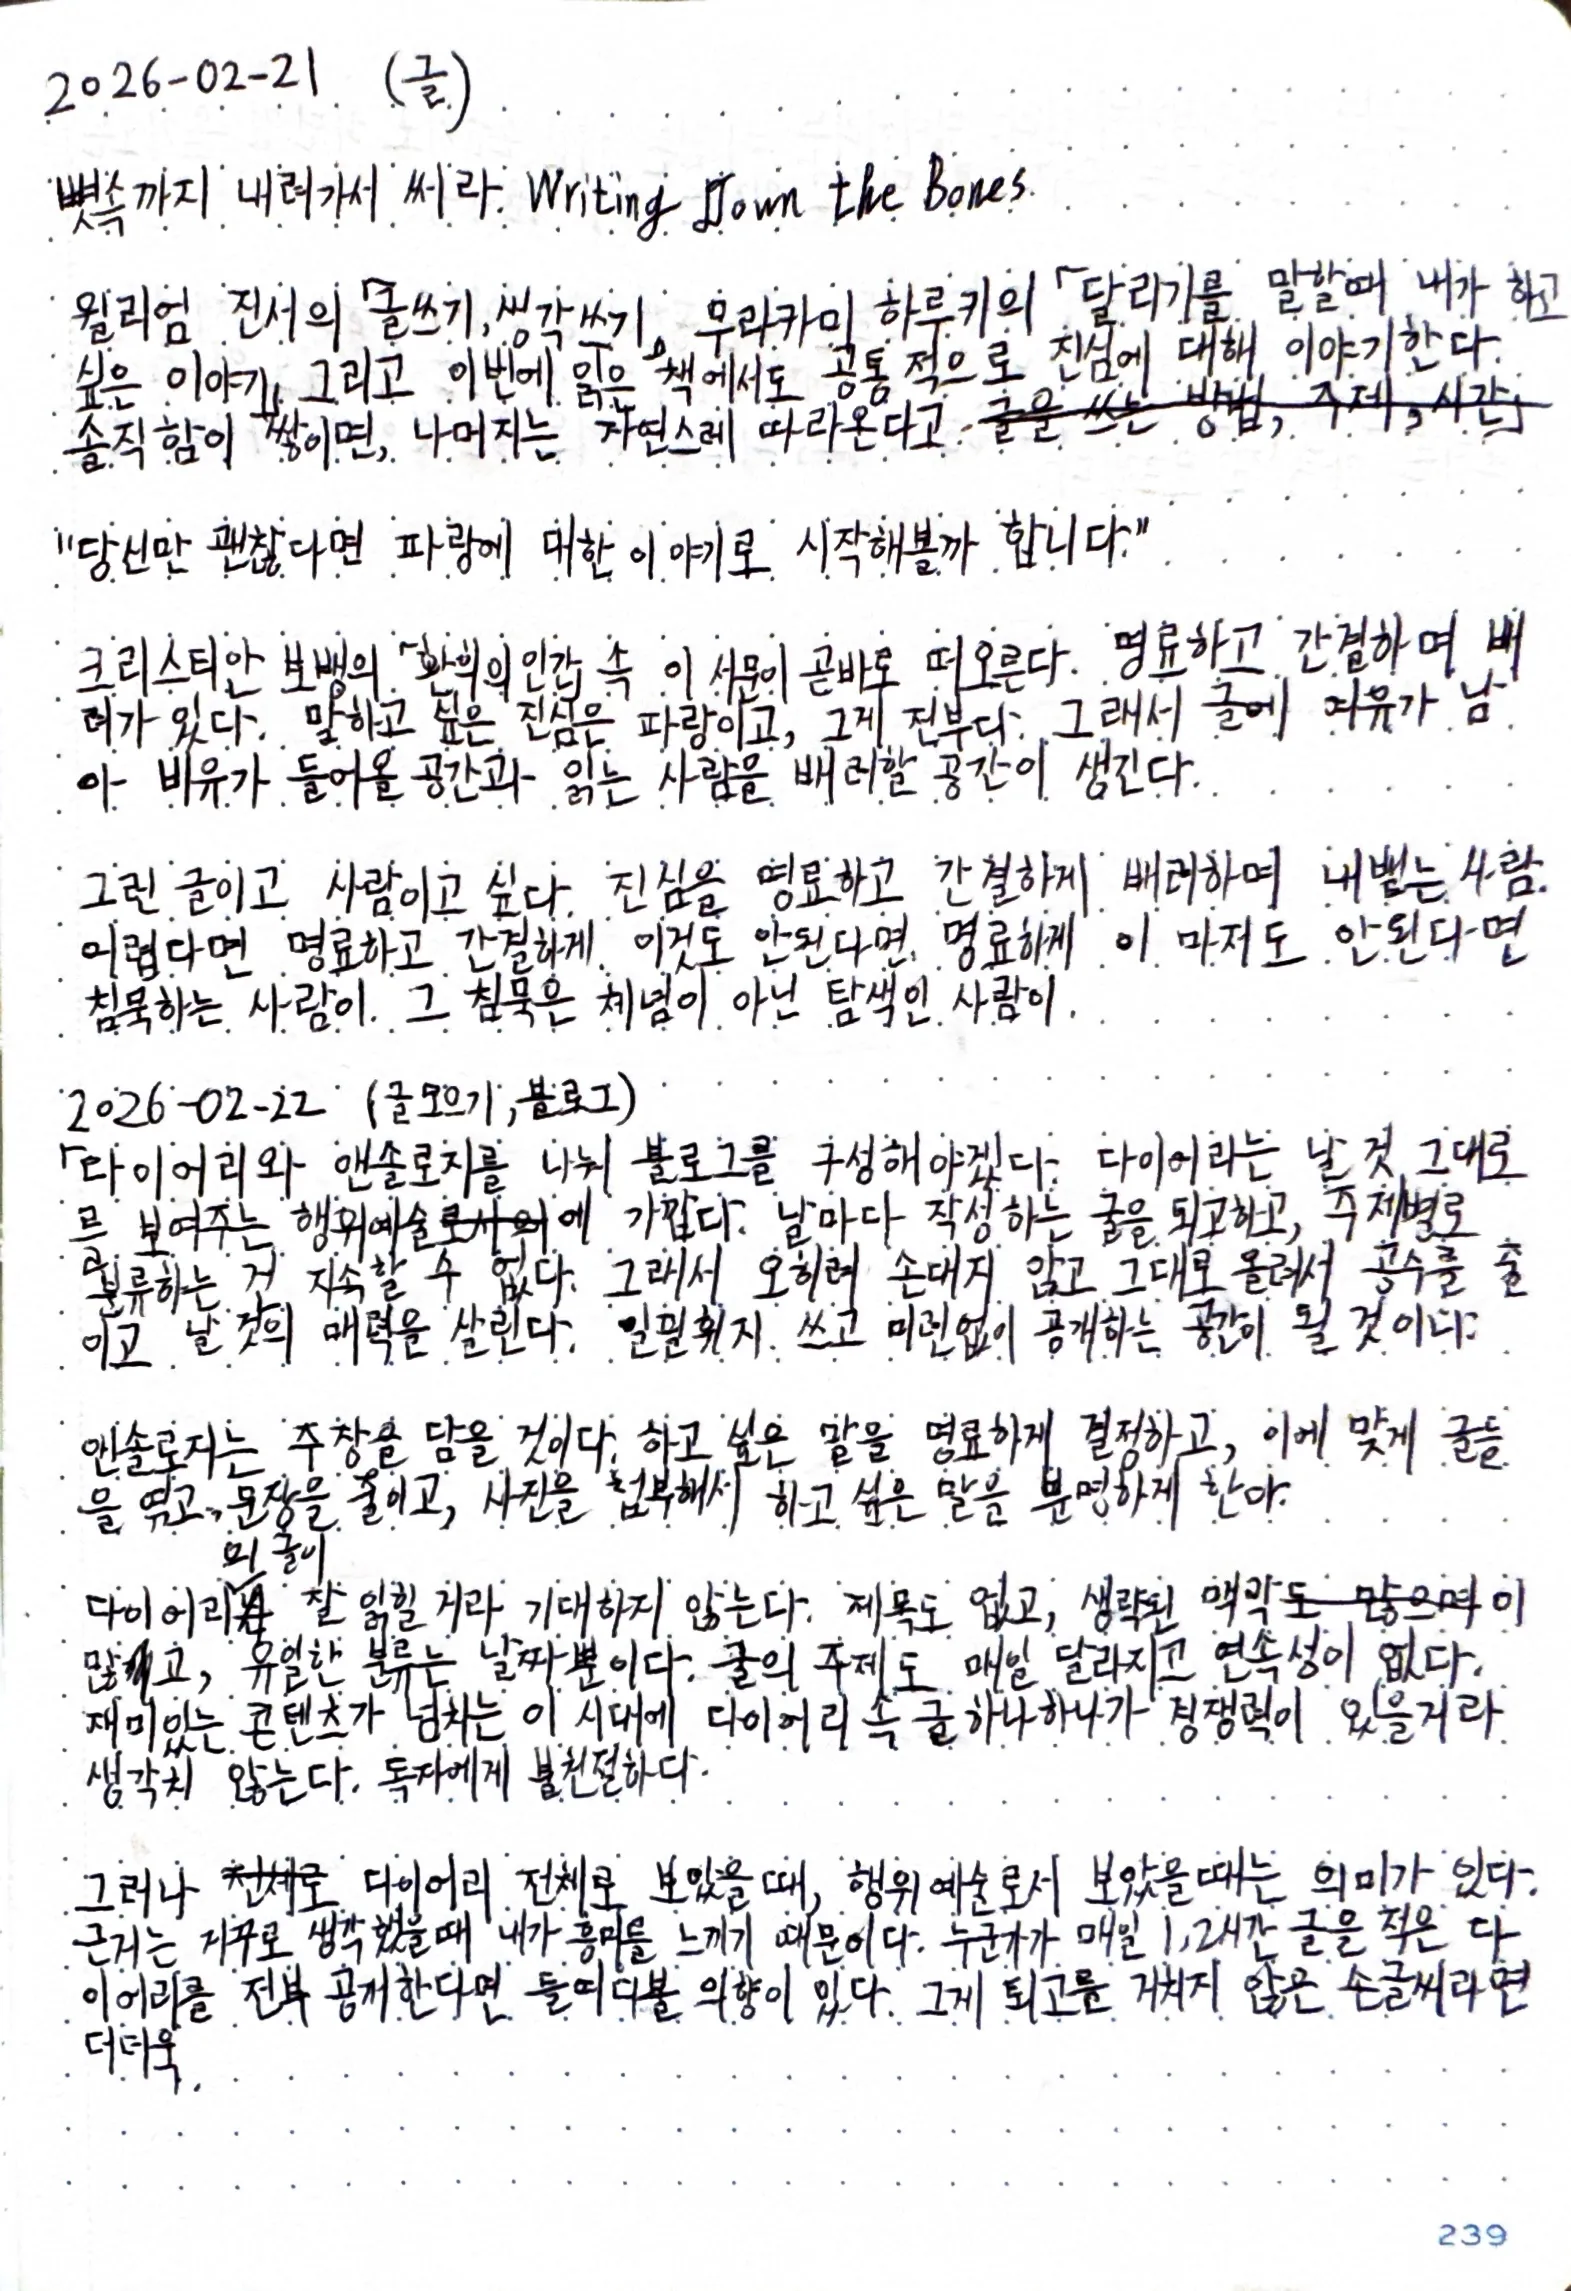 2026-02-21 (글)
뼛속까지 내려가서 써라. Writing Down the Bones.
윌리엄 진서의 「글쓰기, 생각쓰기」, 무라카미 하루키의 「달리기를 말할때 내가 하고
싶은 이야기」, 그리고 이번에 읽은 책에서도 공통적으로 진심에 대해 이야기한다.
솔직함이 쌓이면, 나머지는 자연스레 따라온다고. 글을 쓰는 방법, 주제, 시간
"당신만 괜찮다면 파랑에 대한 이야기로 시작해볼까 합니다."
크리스티안 보뱅의 「환희의 인간」 속 이 서문이 곧바로 떠오른다. 명료하고 간결하며 배
려가 있다. 말하고 싶은 진심은 파랑이고, 그게 전부다. 그래서 글에 여유가 남
아 비유가 들어올 공간과 읽는 사람을 배려할 공간이 생긴다.
그런 글이고 사람이고 싶다. 진심을 명료하고 간결하게 배려하며 내뱉는 사람.
어렵다면 명료하고 간결하게. 이것도 안된다면. 명료하게 이 마저도 안된다면
침묵하는 사람이. 그 침묵은 체념이 아닌 탐색인 사람이.
2026-02-22 (글모으기, 블로그)
「다이어리와 앤솔로지를 나눠 블로그를 구성해야겠다. 다이어리는 날 것 그대로
를 보여주는 행위예술로서의에 가깝다. 날마다 작성하는 글을 퇴고하고, 주제별로
분류하는 건 지속할 수 없다. 그래서 오히려 손대지 않고 그대로 올려서 공수를 줄
이고 날 것의 매력을 살린다. 일필휘지. 쓰고 미련없이 공개하는 공간이 될 것이다.
앤솔로지는 주장을 담을 것이다. 하고 싶은 말을 명료하게 결정하고, 이에 맞게 글들
을 엮고, 문장을 줄이고, 사진을 첨부해서 하고 싶은 말을 분명하게 한다.
의 글이
다이어리 잘 읽힐 거라 기대하지 않는다. 제목도 없고, 생략된 맥락도 많으며 이
많고, 유일한 분류는 날짜뿐이다. 글의 주제도 매일 달라지고 연속성이 없다.
재미있는 콘텐츠가 넘치는 이 시대에 다이어리 속 글 하나하나가 경쟁력이 있을거라
생각치 않는다. 독자에게 불친절하다.
그러나 전체로 다이어리 전체로 보았을 때, 행위예술로서 보았을때는 의미가 있다.
근거는 거꾸로 생각했을때 내가 흥미를 느끼기 때문이다. 누군가가 매일 1,2시간 글을 적은 다
이어리를 전부 공개한다면 들여다볼 의향이 있다. 그게 퇴고를 거치지 않은 손글씨라면
더더욱.
239